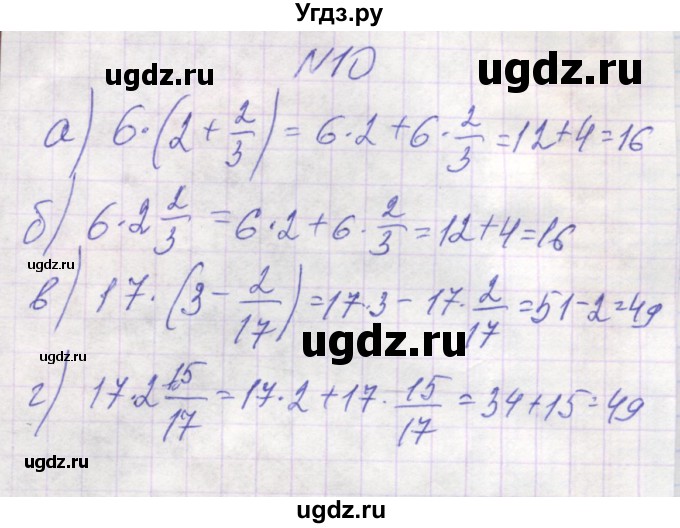 Угдз.ру
ugdz.ru ugdz.ru
№10
а) 6·(2+2/3)=6·2+6·2/3=12+4=16
б) 6·2 2/3=6·2+6·2/3=12+4=16
ugdz.ru
в) 17·(3-2/17)=17·3-17·2/17=51-2=49
ugdz.ru
г) 17·2 15/17=17·2+17·15/17=34+15=49
ugdz.ru
ugdz.ru